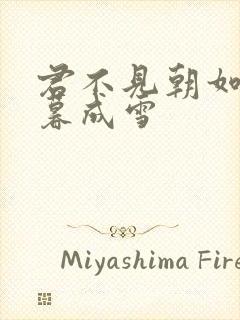 君不見朝如
暮成雪
Miyashima Fire